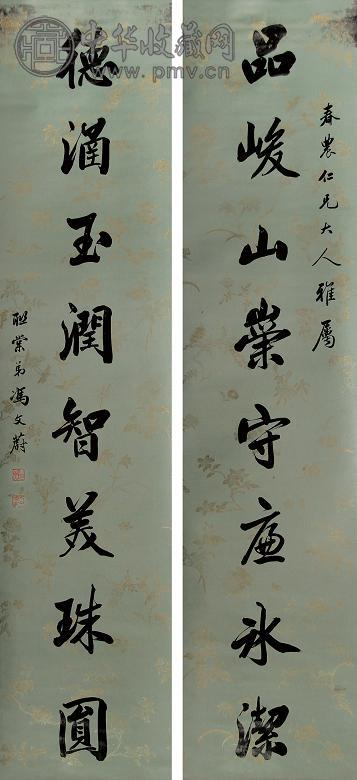 中华收藏网
www.pmv.cn
春農仁兄大人雅屬
品峻山榮守廉氷潔
德涵玉潤智美珠圓
聯棠弟馮文蔚